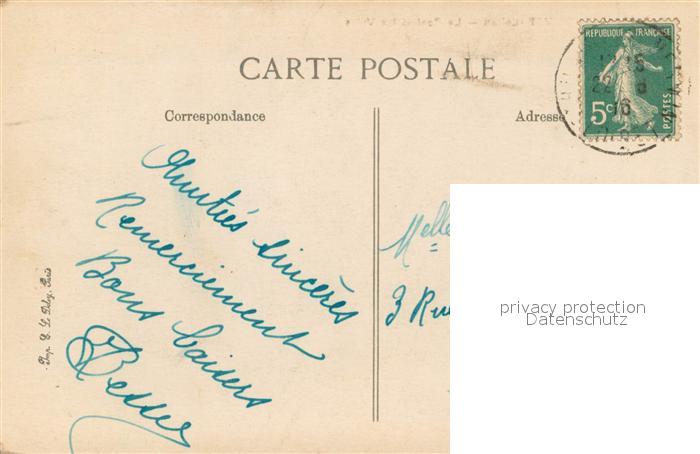 CARTE POSTALE
Correspondance
Adresse
RÉPUBLIQUE FRANÇAISE
5c
POSTES
22
16
Amitiés sincères
Remerciement
Bons baisers
Melle
3 Rue
Imp. E. Le Deley, Paris
privacy protection
Datenschutz